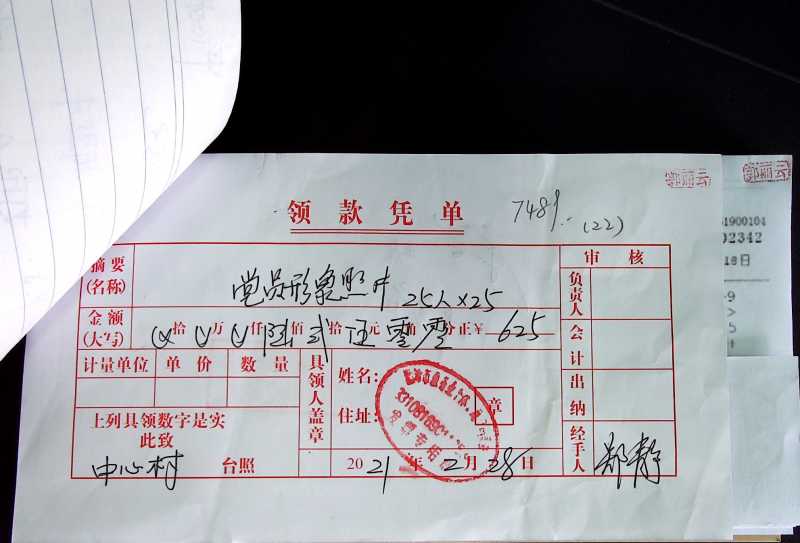 领款凭单
(22)
摘要
(名称)
党员形象照片 25人×25
审核
负责人
金额
(大写)
拾万仟佰拾元角分正¥ 625
陆 贰 伍 零 零
会计
计量单位 单价 数量
具领人盖章
姓名:
住址:
章
出纳
上列具领数字是实
此致
中心村 台照
2021年2月28日
经手人
郑静
1900104
02342
18日